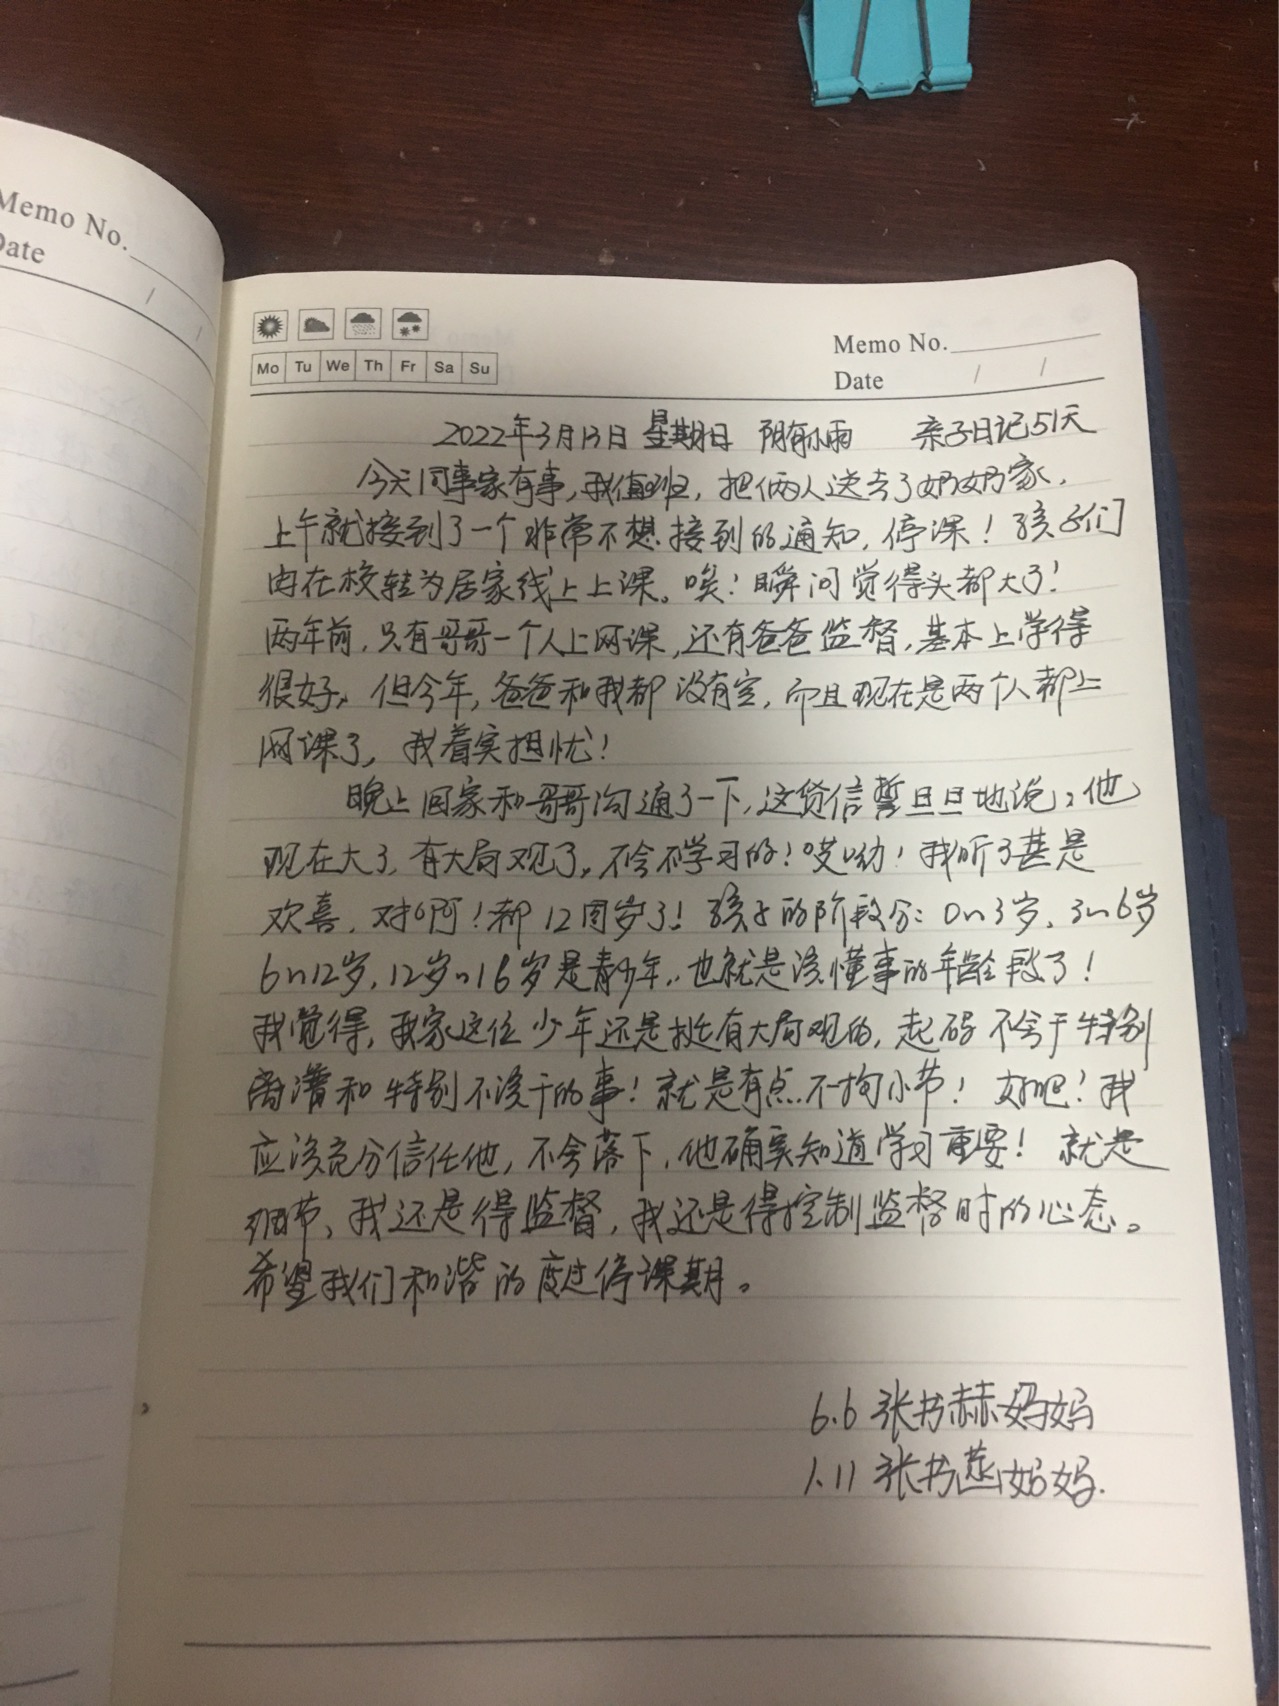 Memo No.
Date / /
Mo Tu We Th Fr Sa Su
Memo No.
Date / /
2022年3月13日 星期日 阴有小雨 亲子日记51天
今天同事家有事,我值班,把俩人送去了奶奶家,
上午就接到了一个非常不想接到的通知,停课!孩子们
由在校转为居家线上上课。唉!瞬间觉得头都大了!
两年前,只有哥哥一个人上网课,还有爸爸监督,基本上学得
很好。但今年,爸爸和我都没有空,而且现在是两个人都上
网课了,我着实担忧!
晚上回家和哥哥沟通了一下,这货信誓旦旦地说:他
现在大了,有大局观了。不会不学习的!哎呦!我听了甚是
欢喜,对啊!都12周岁了!孩子的阶段分:0~3岁,3~6岁
6~12岁,12岁~16岁是青少年,也就是该懂事的年龄段了!
我觉得,我家这位少年还是挺有大局观的,起码不会干特别
离谱和特别不该干的事!就是有点不拘小节!好吧!我
应该充分信任他,不会落下,他确实知道学习重要!就是
细节,我还是得监督,我还是得控制监督时的心态。
希望我们和谐的度过停课期。
6.6 张书赫妈妈
1.11 张书燕妈妈.